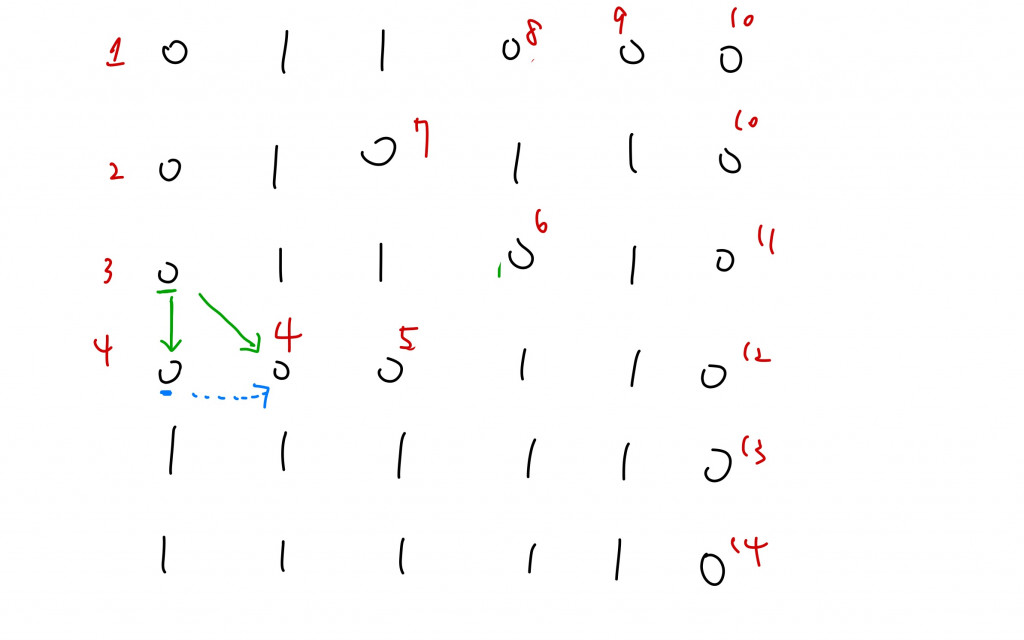 1 0 1 1 0 8 0 9 0 10
2 0 1 0 7 1 1 0 10
3 0 1 1 0 6 1 0 11
4 0 0 4 0 5 1 1 0 12
1 1 1 1 1 0 13
1 1 1 1 1 0 14